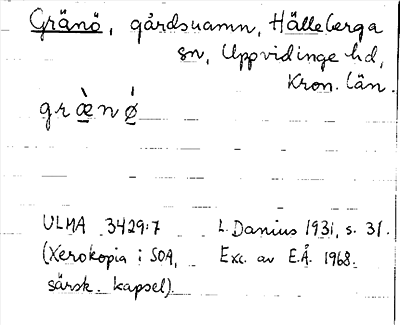 Gränö, gårdsnamn, Hälleberga
sn, Uppvidinge hd,
Kron. län.
græ̀nǿ
ULMA 3429:7 L. Danius 1931, s. 31.
(Xerokopia i SOA, Exc. av E.Å. 1968.
särsk. kapsel)